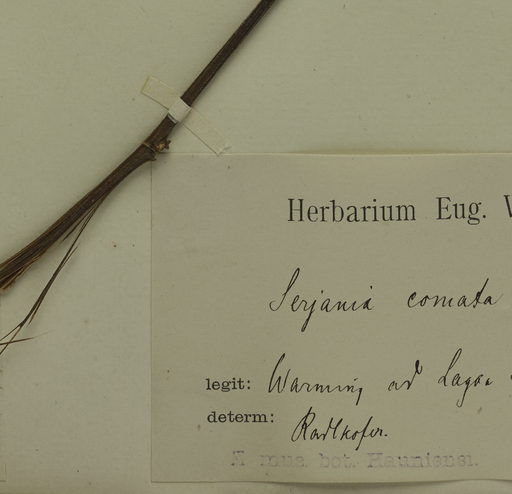 Herbarium Eug. W
Serjania comata
legit: Warming ad Lagoa
determ: Radlkofer.
E mus. bot. Hauniensi.